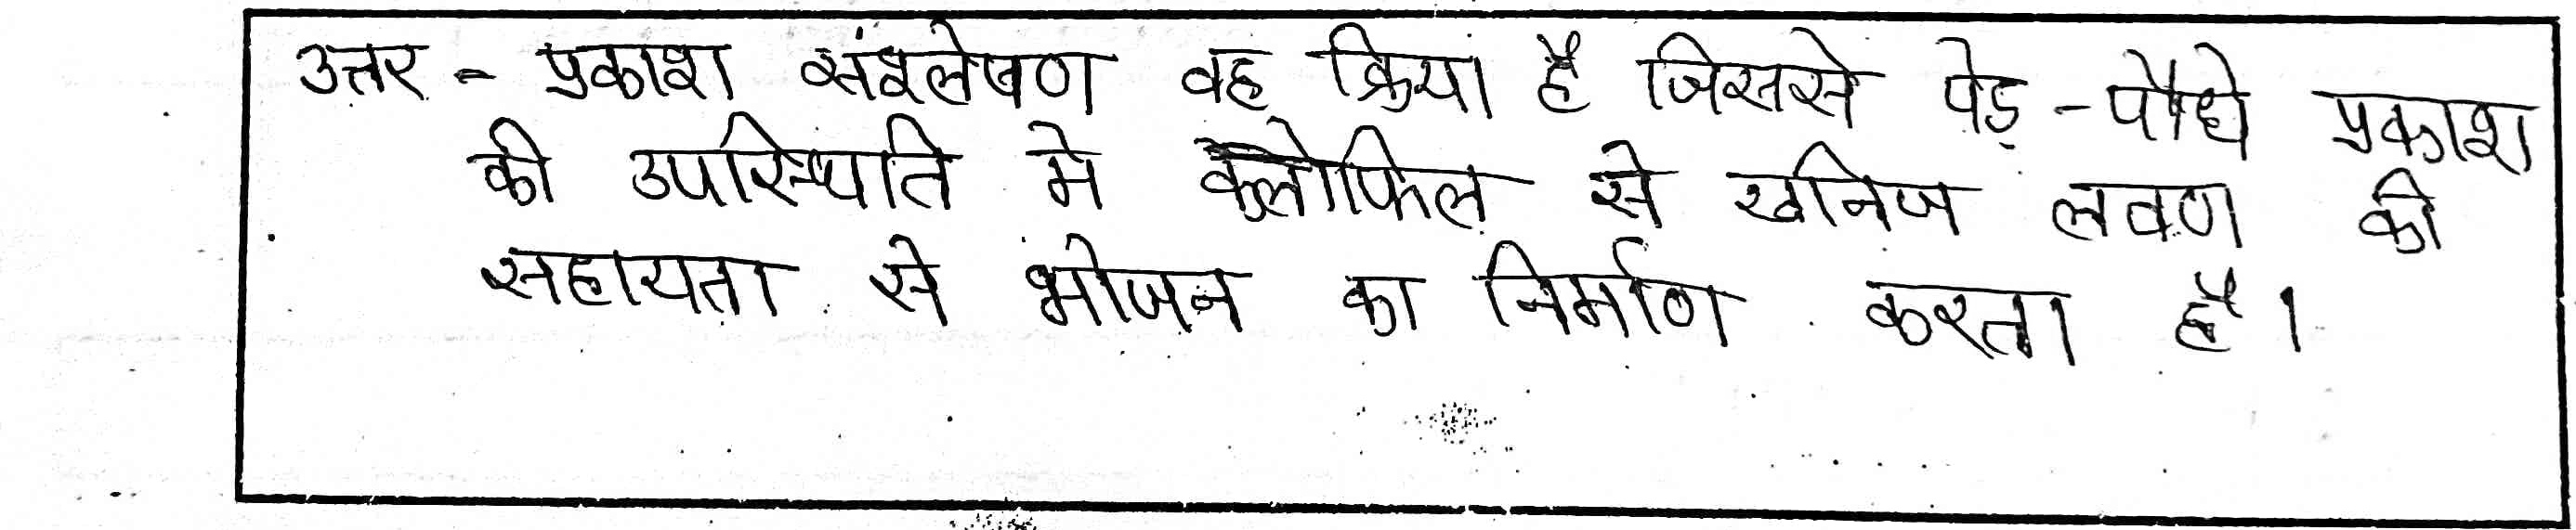 उत्तर - प्रकाश संश्लेषण वह क्रिया है जिससे पेड़ -पौधे प्रकाश
की उपस्थिति मे क्लोफिल से खनिज लवण की
सहायता से भोजन का निर्माण करता है।